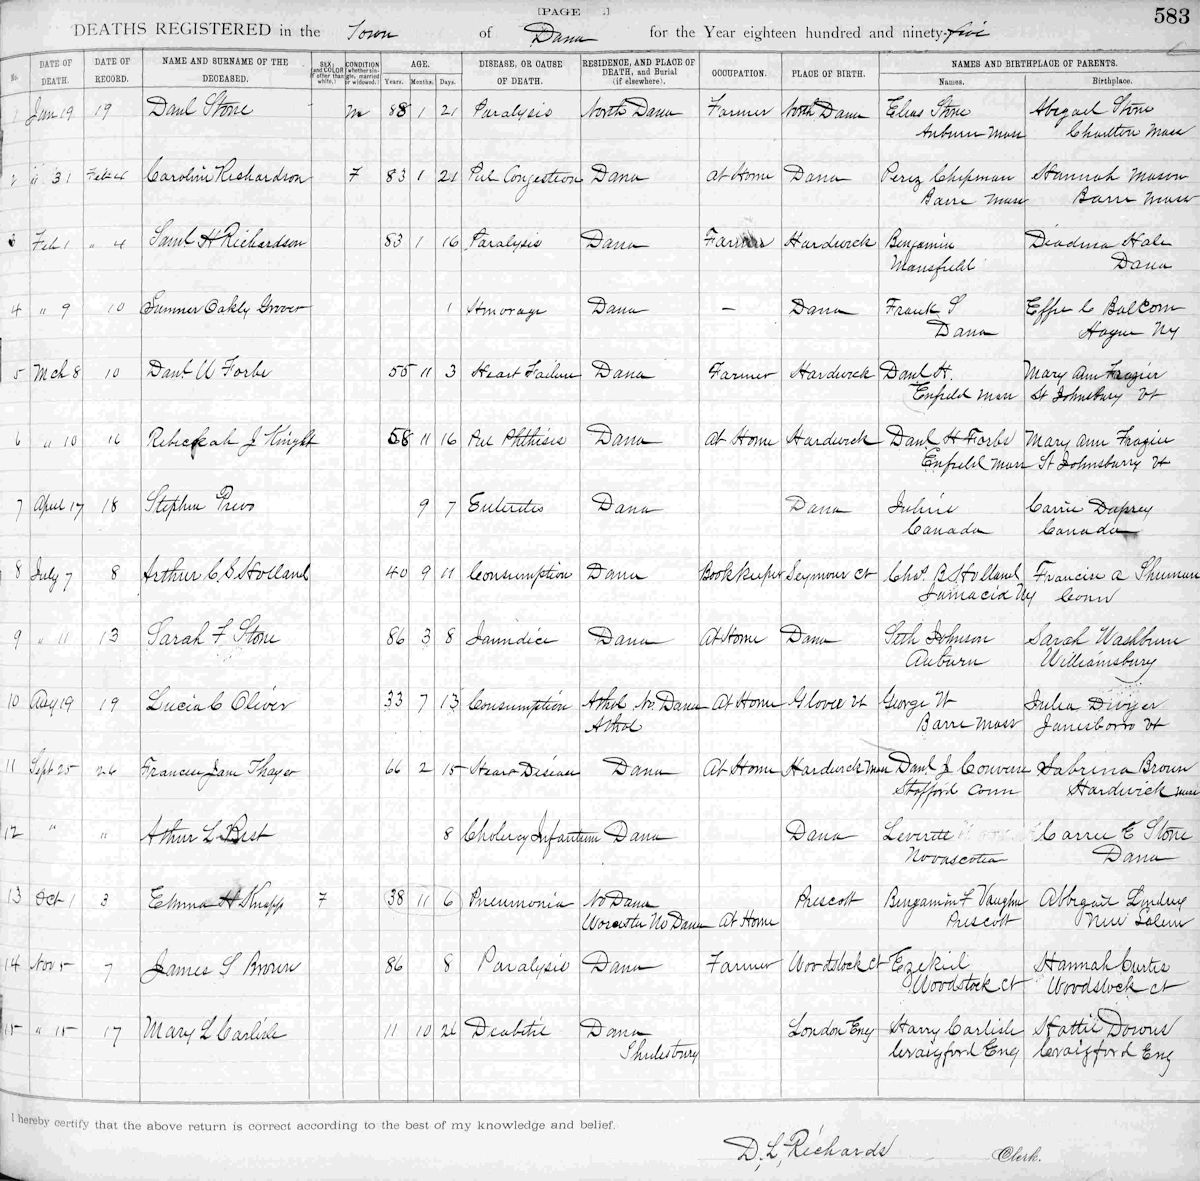 [PAGE ..]
583
DEATHS REGISTERED in the Town of Dana for the Year eighteen hundred and ninety-five
No. DATE OF DEATH. DATE OF RECORD. NAME AND SURNAME OF THE DECEASED. SEX; (and COLOR if other than white.) CONDITION (whether single, married or widowed.) AGE. Years. Months. Days. DISEASE, OR CAUSE OF DEATH. RESIDENCE, AND PLACE OF DEATH, and Burial (if elsewhere). OCCUPATION. PLACE OF BIRTH. NAMES AND BIRTHPLACE OF PARENTS. Names. Birthplace.
1 Jan 19 19 Danl Stone M 88 1 21 Paralysis North Dana Farmer North Dana Elias Stone Abigael Stone
Auburn Mass Charlton Mass
2 " 31 Feb 4 Caroline Richardson F 83 1 21 Pul Congestion Dana At Home Dana Perez Chipman Hannah Mason
Barre Mass Barre Mass
3 Feb 1 " 4 Saml H Richardson 83 1 16 Paralysis Dana Farmer Hardwick Benjamin Hale
Mansfield Dana
4 " 9 10 Sumner Oakly Grover 1 Hmorage Dana – Dana Frank S Effie C Balcom
Dana Hague Ny
5 Mch 8 10 Danl W Forbs 55 11 3 Heart Failure Dana Farmer Hardwick Danl H. Mary Ann Frazier
Enfield Mass St Johnsbury Vt
6 " 10 16 Rebickah J Knight 58 11 16 Pul Phthisis Dana At Home Hardwick Danl H Forbs Mary Ann Frazier
Enfield Mass St Johnsbury Vt
7 April 17 18 Stephen 9 7 Enteretis Dana Dana Carrie Duprey
Canada Canada
8 July 7 8 Arthur C S Holland 40 9 11 Consumption Dana Bookkeeper Seymour Ct Chs. B Holland Francise A Shuman
Jamacia Ny Conn
9 " 11 13 Sarah F Stone 86 3 8 Jaundice Dana At Home Dana Seth Johnson Sarah Washburn
Auburn Williamsbury
10 Aug 19 19 Lucia C Oliver 33 7 13 Consumption Athol No Dana At Home Glover Vt George W Julia
Athol Barre Mass Janesboro Vt
11 Sept 25 26 Frances Jane Thayer 66 2 15 Heart Disease Dana At Home Hardwick Mass Danl J Converse Sabrina Brown
Stafford Conn Hardwick Mass
12 " " Athur L Best 8 Cholery Infantum Dana Dana Leverett Carrie E Stone
Novascotia Dana
13 Oct 1 3 Emma H Knapp F 38 11 6 Pneumonia No Dana Prescott Benjamin F Vaughn Abbigail Lindsey
Worcester No Dana At Home Prescott New Salem
14 Nov 5 7 James S Brown 86 8 Paralysis Dana Farmer Woodstock Ct Ezekiel Hannah Curtis
Woodstock Ct Woodstock Ct
15 " 15 17 Mary L Carlisle 11 10 26 Deabitie Dana London Eng Harry Carlisle Hattie Downs
Shutesbury Craigford Eng Craigford Eng
I hereby certify that the above return is correct according to the best of my knowledge and belief.
D. L. Richards Clerk.